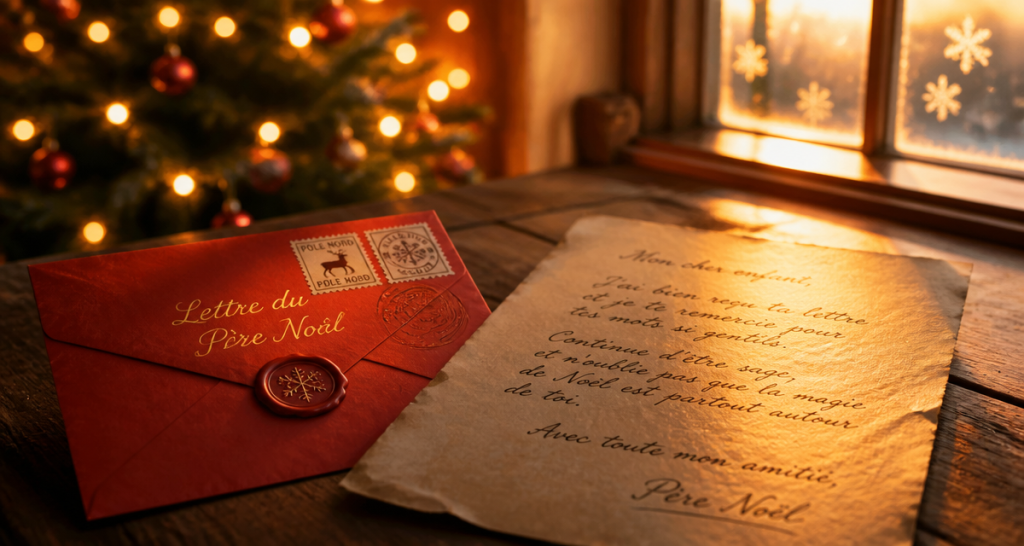 PÔLE NORD
PÔLE NORD
Lettre du
Père Noël
Mon cher enfant,
J'ai bien reçu ta lettre
et je te remercie pour
tes mots si gentils.
Continue d'être sage,
et n'oublie pas que la magie
de Noël est partout autour
de toi.
Avec toute mon amitié,
Père Noël